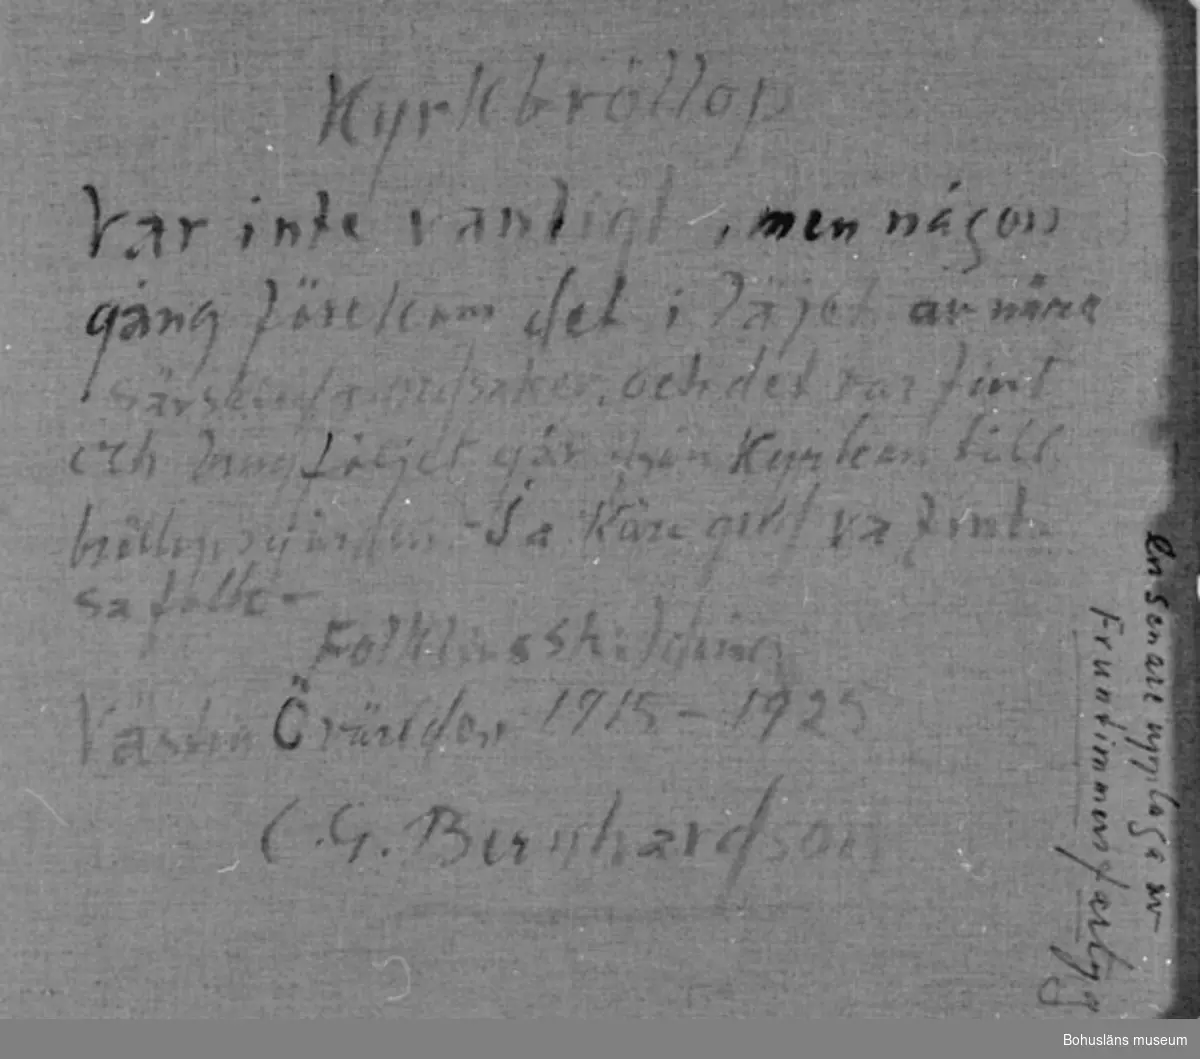 Kyrkbröllop
Var inte vanligt, men någon
gång förekom det i läjet av några
särskilda ordsaker, och det var fint
och långt följet går från Kyrkan till
bröllopsgården - Ja Käre gud va fint
sa folke -
Folklivsskildring
Västra Övärlden 1915-1925
C.G. Bernhardson
En senare upplaga av
Fruntimmersfartyg
Bohusläns museum